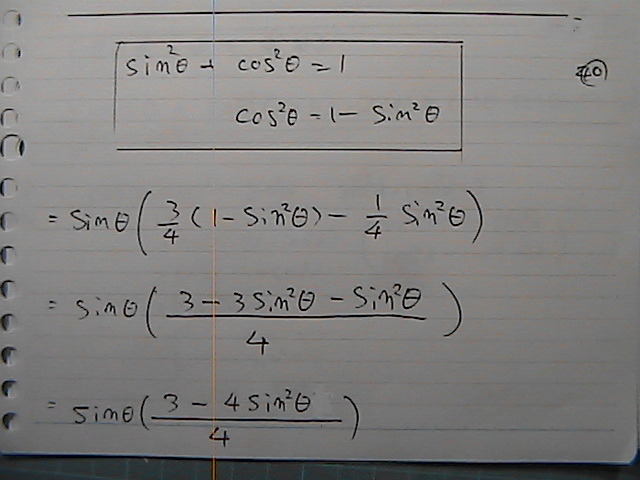 sin²θ + cos²θ = 1
40
cos²θ = 1 - sin²θ
= sinθ(3/4 (1 - sin²θ) - 1/4 sin²θ)
= sinθ((3 - 3sin²θ - sin²θ)/4)
= sinθ((3 - 4sin²θ)/4)